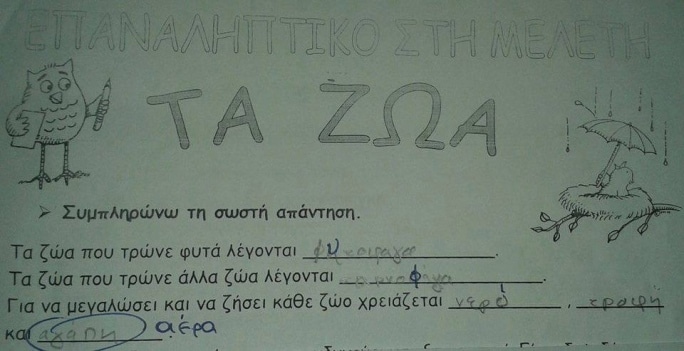 ΕΠΑΝΑΛΗΠΤΙΚΟ ΣΤΗ ΜΕΛΕΤΗ
ΤΑ ΖΩΑ
➢ Συμπληρώνω τη σωστή απάντηση.
Τα ζώα που τρώνε φυτά λέγονται .
Τα ζώα που τρώνε άλλα ζώα λέγονται .
Για να μεγαλώσει και να ζήσει κάθε ζώο χρειάζεται νερό , τροφή
και αγάπη . αέρα